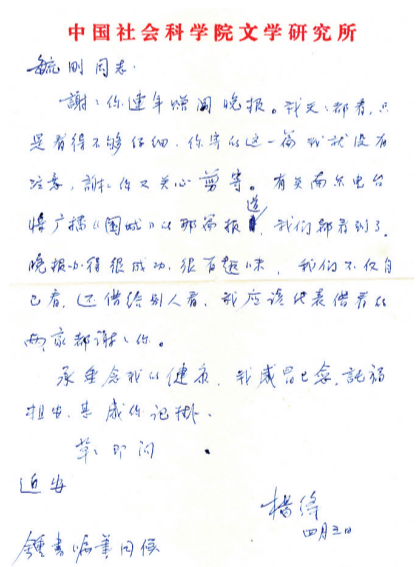 中国社会科学院文学研究所
毓刚同志:
谢谢你连年赠阅晚报。我天天都看,只
是看得不够仔细,你寄的这一篇我就没有
注意,谢谢你又关心剪寄。有关南京电台
将广播《围城》的那篇报道,我们都看到了。
晚报办得很成功,很有趣味,我们不仅自
己看,还借给别人看,我应该代表借看的
两家都谢谢你。
承垂念我的健康,我感冒已愈,託福
粗安,甚感你记掛。
草草即问
近安
杨绛
四月三日
锺书嘱笔问候